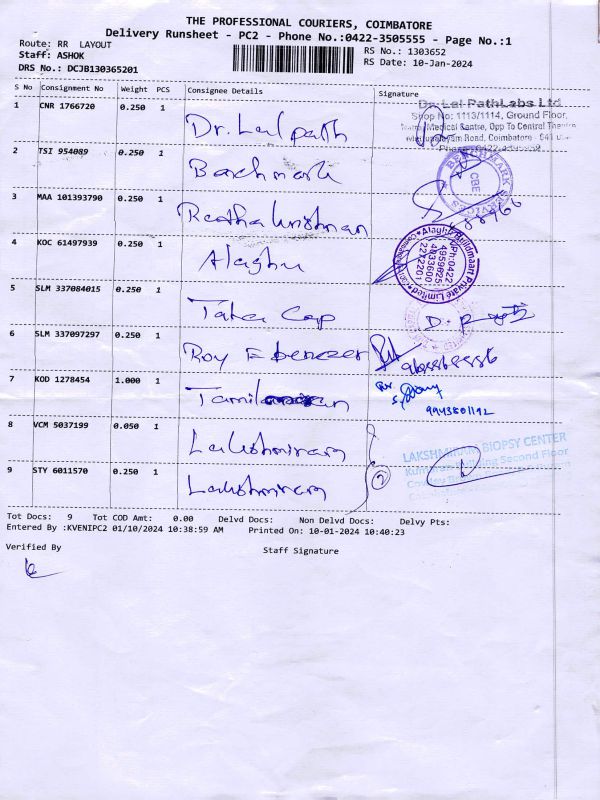 THE PROFESSIONAL COURIERS, COIMBATORE
Delivery Runsheet - PC2 - Phone No.:0422-3505555 - Page No.:1
Route: RR LAYOUT
RS No.: 1303652
Staff: ASHOK
RS Date: 10-Jan-2024
DRS No.: DCJB130365201
S No Consignment No Weight PCS Consignee Details Signature
1 CNR 1766720 0.250 1 Dr. Lal path
Dr. Lal PathLabs Ltd
Shop No: 1113/1114, Ground Floor,
Medical Centre, Opp To Central Theatre
Road, Coimbatore - 641
2 TSI 954089 0.250 1 Benchmark
BENCHMARK
CBE
3 MAA 101393790 0.250 1 Reetha krishnan
4 KOC 61497939 0.250 1 Alaghu
Alaghu Buildmaart Private Limited
Ph: 0422
4959625
4033600
2222201
5 SLM 337084015 0.250 1 Tata Cap
6 SLM 337097297 0.250 1 Roy Ebenezer
7 KOD 1278454 1.000 1
9943501192
8 VCM 5037199 0.050 1 Lakshmiram
LAKSHMIRAM BIOPSY CENTER
Second Floor
9 STY 6011570 0.250 1 Lakshmiram
2
Tot Docs: 9 Tot COD Amt: 0.00 Delvd Docs: Non Delvd Docs: Delvy Pts:
Entered By :KVENIPC2 01/10/2024 10:38:59 AM Printed On: 10-01-2024 10:40:23
Verified By Staff Signature